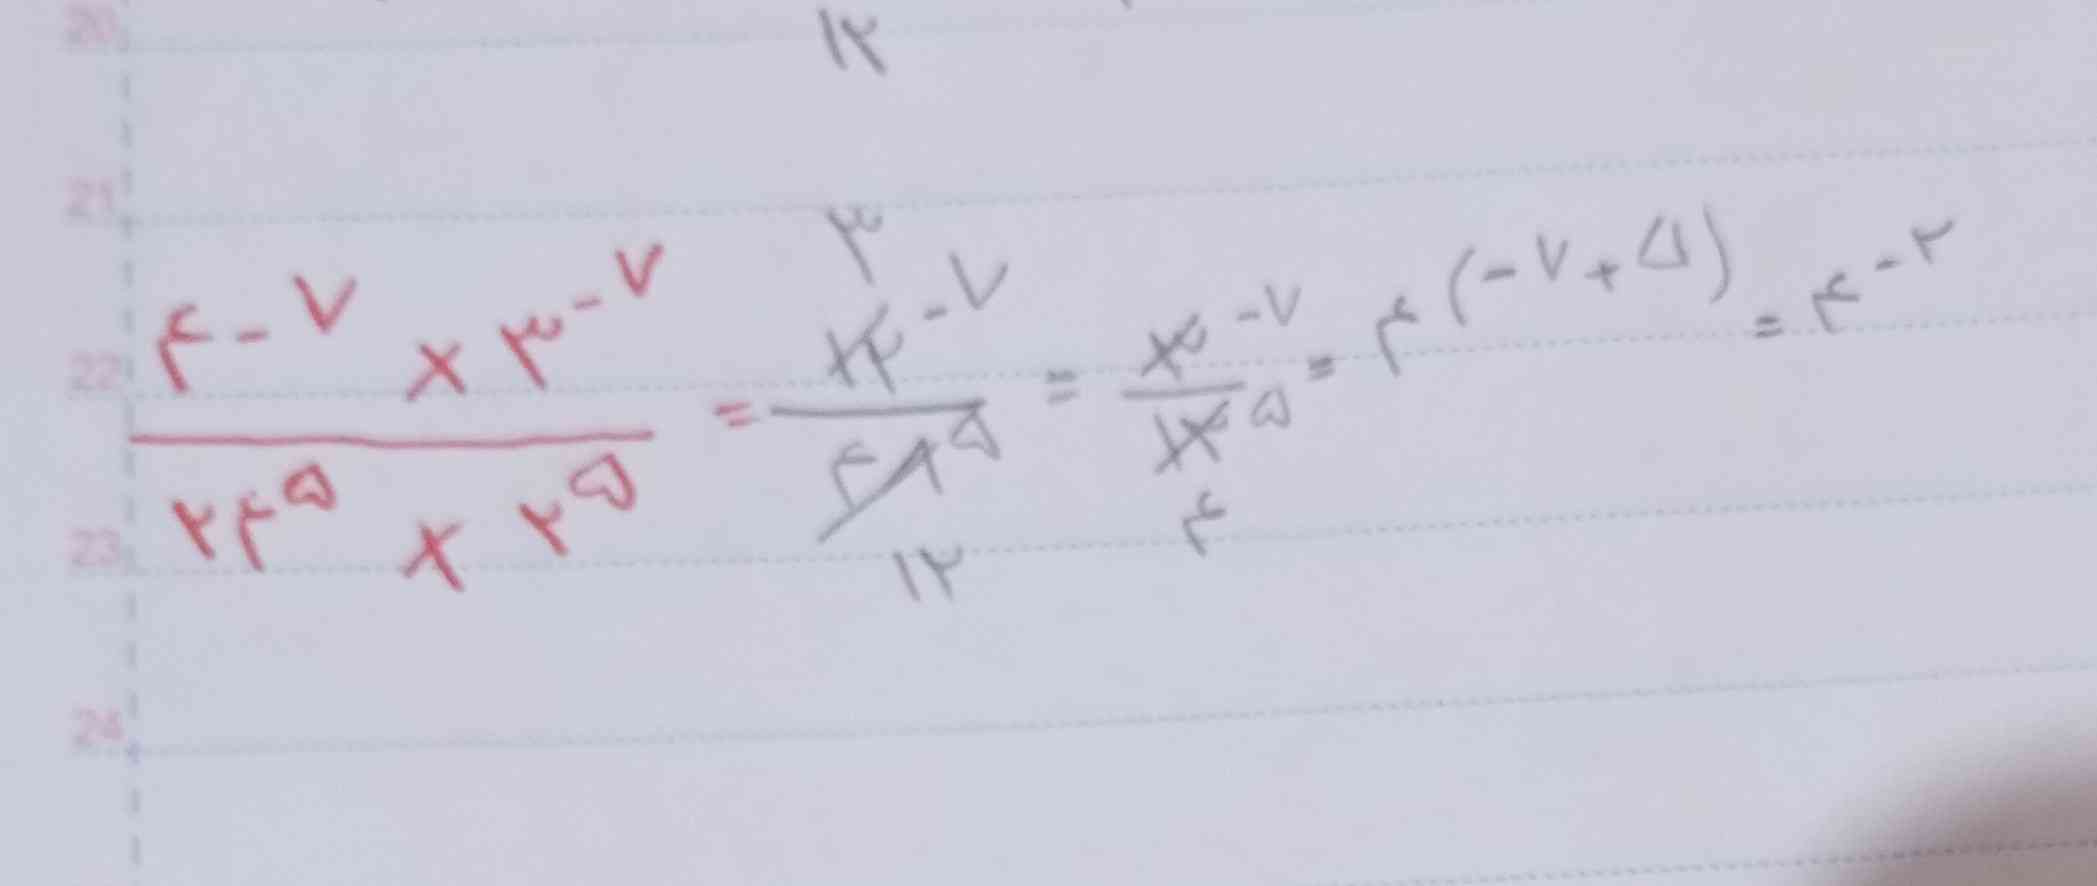 20
۱۲
21
22
۴^-۷ × ۳^-۷ / ۲۴^۵ × ۲^۵ = ۳ ۱۲^-۷ / ۴۸^۵ ۱۲ = ۳^-۷ / ۱۲^۵ ۴ = ۴^(-۷+۵) = ۴^-۲
23
24